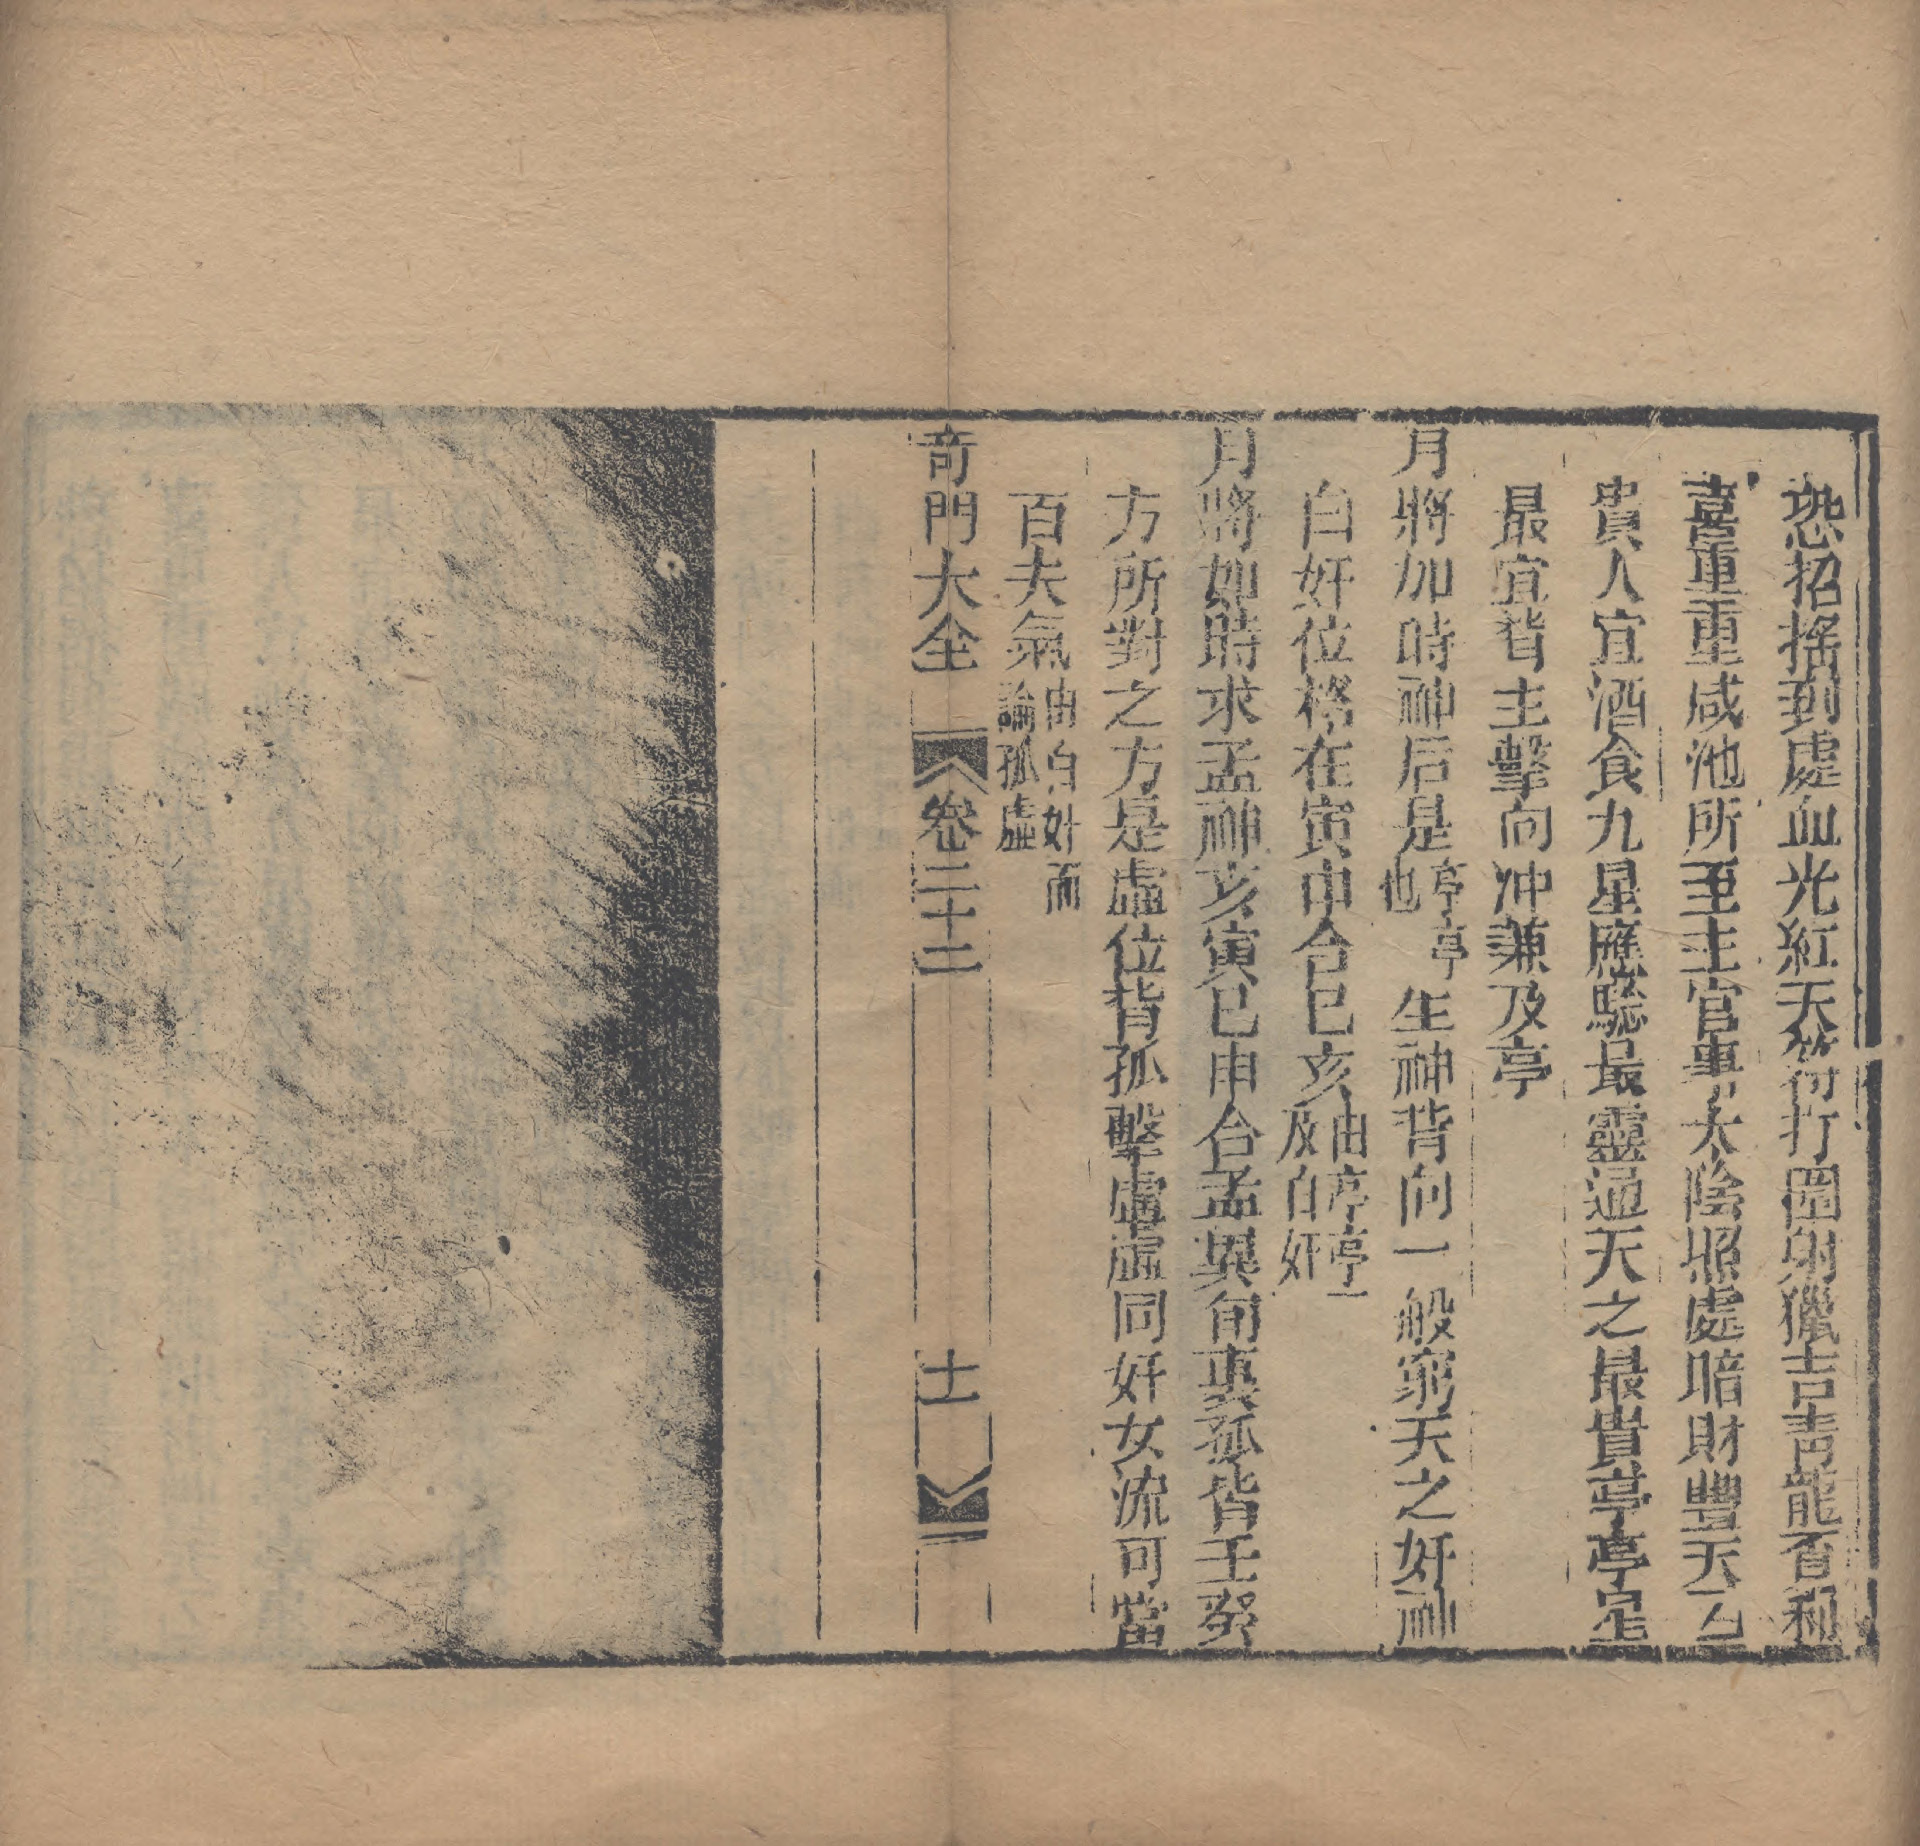 恐招搖到處血光紅天符打圍射獵吉青龍百利
喜重重咸池所至主官事太陰照處暗財豐天乙
貴人宜酒食九星應驗最靈通天之最貴亭亭是
最宜背主擊向冲兼及亭
月將加時神后是亭亭也生神背向一般窮天之奸神
白奸位格在寅申合巳亥由亭亭一及白奸
月將如時求孟神亥寅巳申合孟與旬裏孤背壬癸
方所對之方是虛位背孤擊虛虛同奸女流可當
百夫氣由白奸而論孤虛
奇門大全 卷二十二 十一